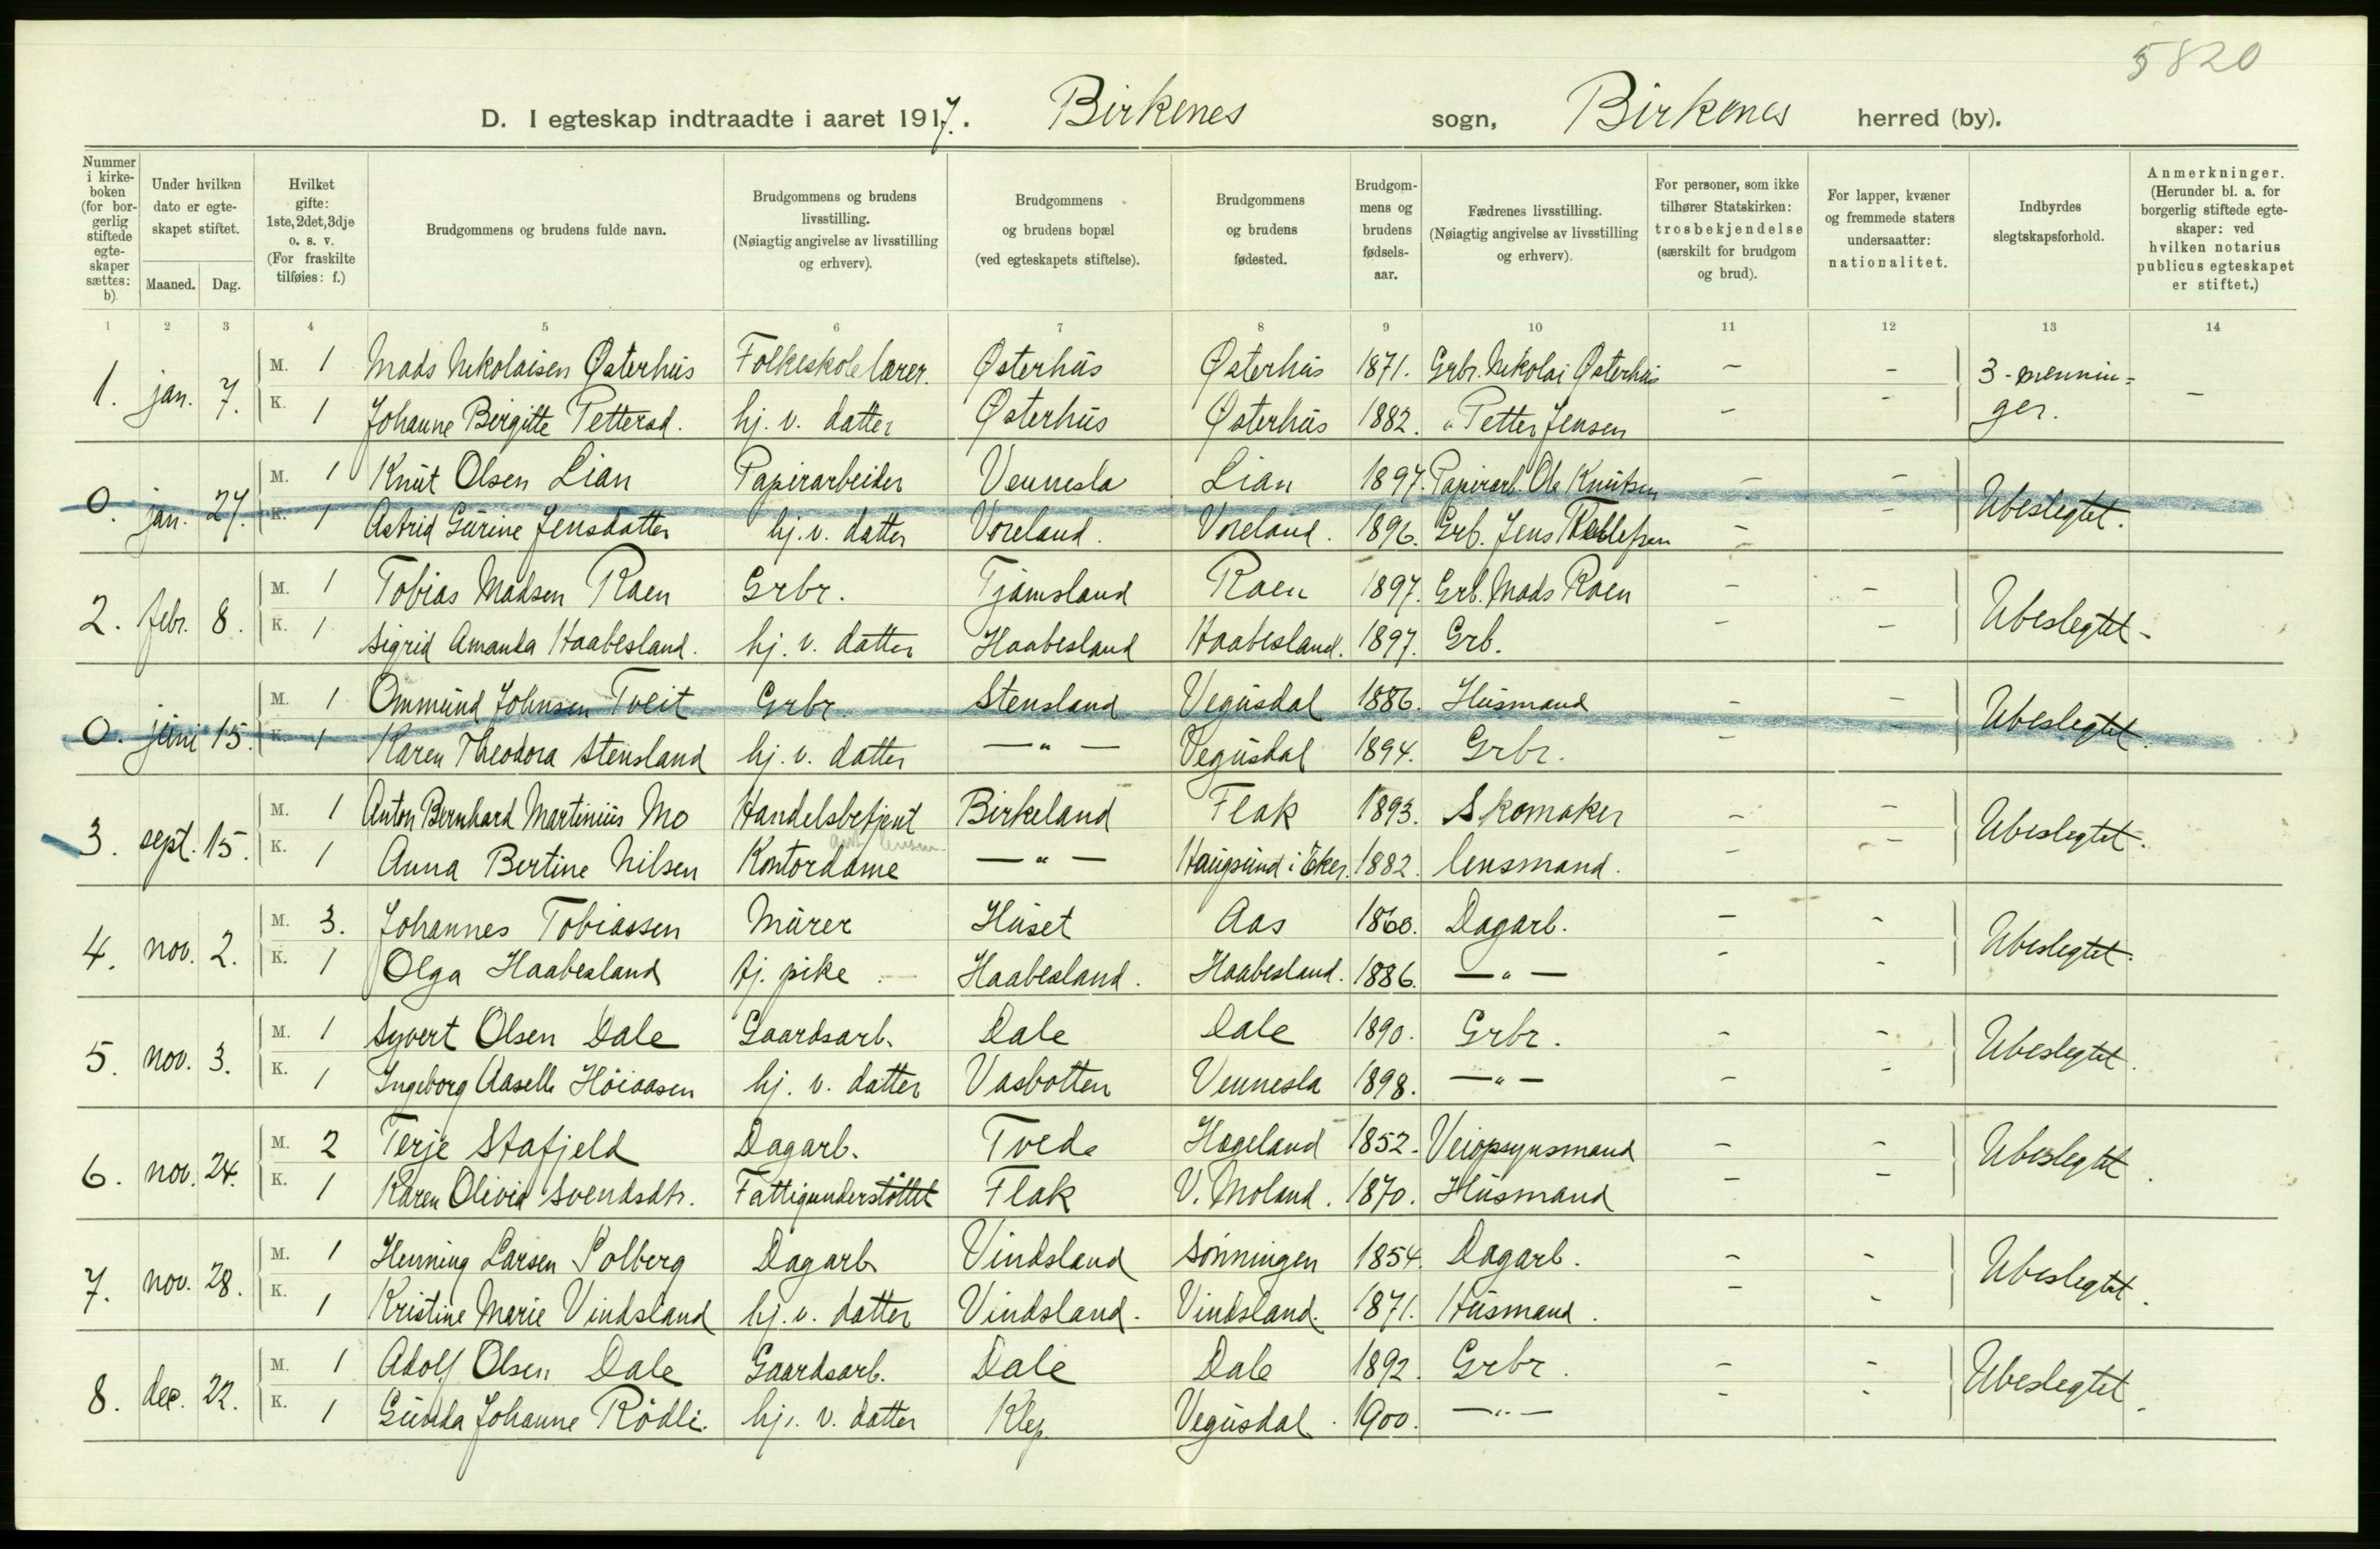 5820
D. I egteskap indtraadte i aaret 1917. Birkenes sogn, Birkenes herred (by).
Nummer i kirke-boken (for bor-gerlig stiftede egte-skaper sættes: b).
Under hvilken dato er egte-skapet stiftet.
Maaned. Dag.
Hvilket gifte: 1ste, 2det, 3dje o. s. v. (For fraskilte tilføies: f.)
Brudgommens og brudens fulde navn.
Brudgommens og brudens livsstilling. (Nøiagtig angivelse av livsstilling og erhverv).
Brudgommens og brudens bopæl (ved egteskapets stiftelse).
Brudgommens og brudens fødested.
Brudgom-mens og brudens fødsels-aar.
Fædrenes livsstilling. (Nøiagtig angivelse av livsstilling og erhverv).
For personer, som ikke tilhører Statskirken: trosbekjendelse (særskilt for brudgom og brud).
For lapper, kvæner og fremmede staters undersaatter: nationalitet.
Indbyrdes slegtskapsforhold.
Anmerkninger. (Herunder bl. a. for borgerlig stiftede egte-skaper: ved hvilken notarius publicus egteskapet er stiftet.)
1 2 3 4 5 6 7 8 9 10 11 12 13 14
1. jan. 7. M. 1 Mads Nikolaisen Østerhus Folkeskolelærer. Østerhus Østerhus 1871. Grbr. Nikolai Østerhus - - 3-mennin=
K. 1 Johanne Birgitte Pettersd. hj. v. datter Østerhus Østerhus 1882. " Petter Jensen - - ger. -
0. jan. 27. M. 1 Knut Olsen Lian Papirarbeider Vennesla Lian 1897. Papirarb. Ole Knutsen - - Ubeslegtet.
K. 1 Astrid Gurine Jensdatter hj. v. datter Voreland. Voreland. 1896. Grb. Jens Tellefsen - -
2. febr. 8. M. 1 Tobias Madsen Raen Grbr. Tjamsland Raen 1897. Grb. Mads Raen - - Ubeslegtet -
K. 1 Sigrid Amanda Haabesland. hj. v. datter Haabesland Haabesland. 1897. Grb. - -
0. juni 15. M. 1 Ommund Johnsen Tveit Grbr. Stensland Vegusdal 1886. Husmand - - Ubeslegtet.
K. 1 Karen Theodora Stensland hj. v. datter — " — Vegusdal 1894. Grbr. -
3. sept. 15. M. 1 Anton Bernhard Martinius Mo Handelsbetjent Birkeland Flak 1893. Skomaker - - Ubeslegtet.
K. 1 Anna Bertine Nilsen Kontordame — " — Haugsund i Eker. 1882. lensmand. - -
4. nov. 2. M. 3. Johannes Tobiassen Murer Huset Aas 1860. Dagarb. - - Ubeslegtet.
K. 1 Olga Haabesland tj. pike Haabesland. Haabesland. 1886. — " — - -
5. nov. 3. M. 1 Syvert Olsen Dale Gaardsarb. Dale Dale 1890. Grbr. - - Ubeslegtet.
K. 1 Ingeborg Aaselle Höiaasen hj. v. datter Vasbotten Vennesla 1898. — " — - -
6. nov. 24. M. 2 Terje Stafjeld Dagarb. Tvede Hægeland 1852. Veiopsynsmand - - Ubeslegtet.
K. 1 Karen Olivia Svendsdtr. Fattigunderstöttet Flak V. Moland. 1870. Husmand - -
7. nov. 28. M. 1 Henning Larsen Solberg Dagarb. Vindsland Sönningen 1854. Dagarb. - - Ubeslegtet.
K. 1 Kristine Marie Vindsland hj. v. datter Vindsland. Vindsland. 1871. Husmand. - -
8. dec. 22. M. 1 Adolf Olsen Dale Gaardsarb. Dale Dale 1892. Grbr. - - Ubeslegtet.
K. 1 Gunda Johanne Rödli. hj. v. datter Klep. Vegusdal. 1900. — " — - -